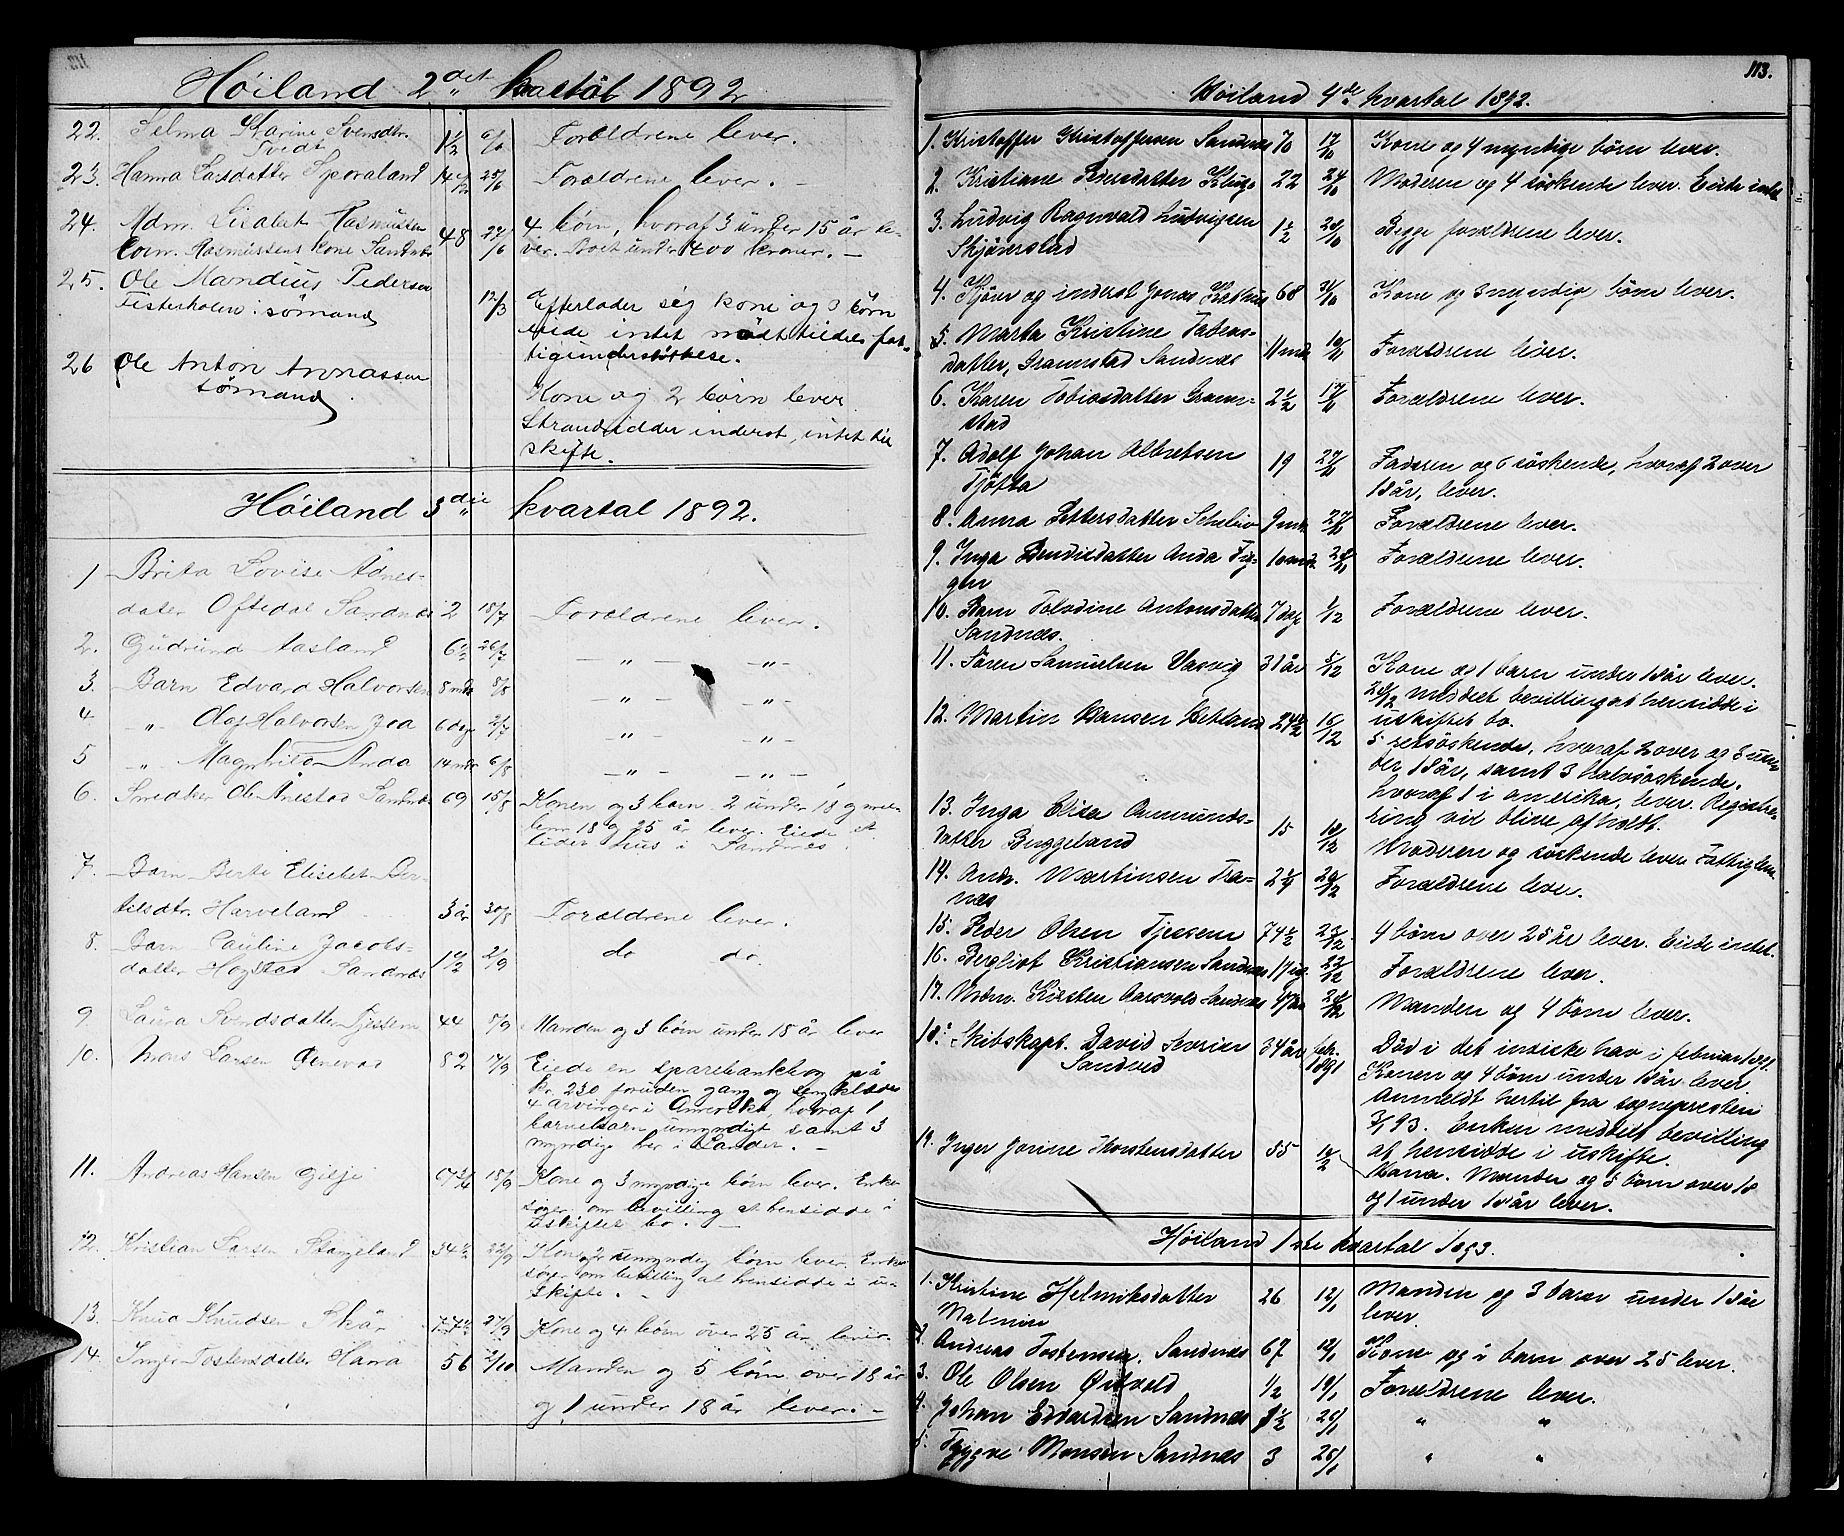 Høiland 2det kvartal 1892
22. Selma Karine Svensdtr. 1½ 6/6 Forældrene lever.
Tvedt
23. Hanna Larsdatter Sporaland 14 25/6 Forældrene lever. -
24. Adm. Lisabet Rasmussen 48 27/6 4 børn, hvoraf 3 under 15 år le-
Rasmussens kone Sandnæs ver. Boet under 400 kroner. -
25. Ole Mandius Pedersen
sømand 12/3 Efterlader sig kone og 3 børn
eiede intet
tigunderstøttelse.
26 Ole Anton Aronassen
sømand Kone og 2 børn lever
inderst, intet til
skifte.
Høiland 3die kvartal 1892.
1 Brita Lovise Ådnes-
datter Oftedal Sandnæs 2 15/7 Forældrene lever.
2. Gudrund Aasland 6½ 26/7 - „ - - „ -
3. Barn Edvard Halvorsen 8 mdr 5/8 - „ - - „ -
4 „ Olaf Halvorsen Joa 6 dag 2/7 - „ - - „ -
5 „ Magnhild Anda 14 mdr 6/8 - „ - - „ -
6. Smedker Ole Årestad Sandnæs 69 15/8 Konen og 3 barn. 2 under 18 g mel-
lem 18 g 25 år lever. Eiede et
lidet hus i Sandnæs.
7. Barn Berte Elisebet Ber-
tilsdtr. Harveland 3 år 30/8 Forældrene lever.
8. Barn Pauline Jacobs-
datter Hogstad Sandnæs 1 2/9 do do.
9. Laura Svendsdatter Tjessem 44 5/9 Manden og 3 børn under 18 år lever
10. Mons Larsen 82 17/9 Eiede en sparebankbog på
kr. 230 foruden gang og sengklæder
4 arvinger i Amerika, hvoraf 1
barnebarn umyndigt samt 3
myndige her i Landet. -
11. Andreas Hansen Gilje 18/9 Kone og 3 myndige børn lever. Enken
søger om bevilling at hensidde i
uskiftet bo. -
12. Kristian Larsen Stangeland 34½ 22/9 Kone og 2 umyndig børn lever. Enken
søger om bevilling at hensidde i u-
skifte. -
13. Knud Knudsen Skår 77½ 27/9 Kone og 4 børn over 25 år lever.
14. Inger Tostensdatter Hana 56 2/10 Manden og 5 børn over 18 år
og 1 under 18 år lever. -
113.
Høiland 4de kvartal 1892.
1. Kristoffer Kristoffersen Sandnæs 70 17/10 Kone og 4 myndige børn lever.
2. Kristiane Pedersdatter 22 24/10 Moderen og 4 søskende lever. Eiede intet
3. Ludvig Ragnvald Ludvigsen 1½ 20/10 Begge forældrene lever.
Skjørestad
4. Kjøre og inderst Jonas 68 31/10 Kone og 3 myndig børn lever.
5. Marta Kristine Tobias-
datter, Gramstad Sandnæs 11 md. 10/11 Forældrene lever.
6. Karen Tobiasdatter Gram- 2½ 17/11 Forældrene lever.
stad
7. Adolf Johan Albretsen 19 27/11 Faderen og 6 søskende, hvoraf 2 over
Tjøtta 18 år, lever.
8. Anna Pettersdatter 9 md. 27/11 Forældrene lever.
9. Inga Bendiksdatter Anda Fig- 10 md. 28/11 Forældrene lever.
gen
10. Barn Tolodine Antonsdatter 7 dage 1/12 Forældrene lever.
Sandnæs.
11. Søren Samuelsen Vasvig 31 år 5/12 Kone og 1 barn under 18 år lever.
20/12 meddelt bevilling at hensidde i
uskiftet bo.
12. Martin Hansen Hetland 24½ 15/12 5 retsøskende, hvoraf 2 over og 3 un-
der 18 år, samt 3 halvsøskende.
hvoraf 1 i amerika, lever. Registre-
ring vil blive afholdt.
13. Inga Elise Aamunds-
datter Byggeland 15 10/12 Moderen og søskende lever. Fattiglem
14. Andr. Martinsen Tra- 2¼ 20/12 Forældrene lever.
næs
15. Peder Olsen Tjessem 74½ 23/12 4 børn over 25 år lever. Eiede intet.
16. Bergliot Kristiansen Sandnæs 22/12 Forældrene lever.
17. Adm. Kirsten Aarsvold Sandnæs 47 år 28/12 Manden og 4 børn lever.
18. Skibskapt. David Severin 34 år feb. 1891 Død i det indiske hav i februar 1891.
Sandved Konen og 4 børn under 18 år lever
Anmeldt hertil fra sognepresten
93. Enken meddelt bevilling
at hensidde i uskifte.
19. Inger Jorine Thorstensdatter 55 Hana. Manden og 5 børn over 18
og 1 under 18 år lever.
Høiland 1ste kvartal 1893.
1. Kristine Helmiksdatter 26 12/1 Manden og 3 barn under 18 år
Malmin lever.
2. Andreas Tostensen, Sandnæs 67 12/1 Kone og i barn over 25 lever.
3. Ole Olsen Østvold ½ 19/1 Forældrene lever.
4. Johan Edvardsen Sandnæs 25/1 „ „
5. Tryggve Monsen Sandnæs 3 25/1 „ „